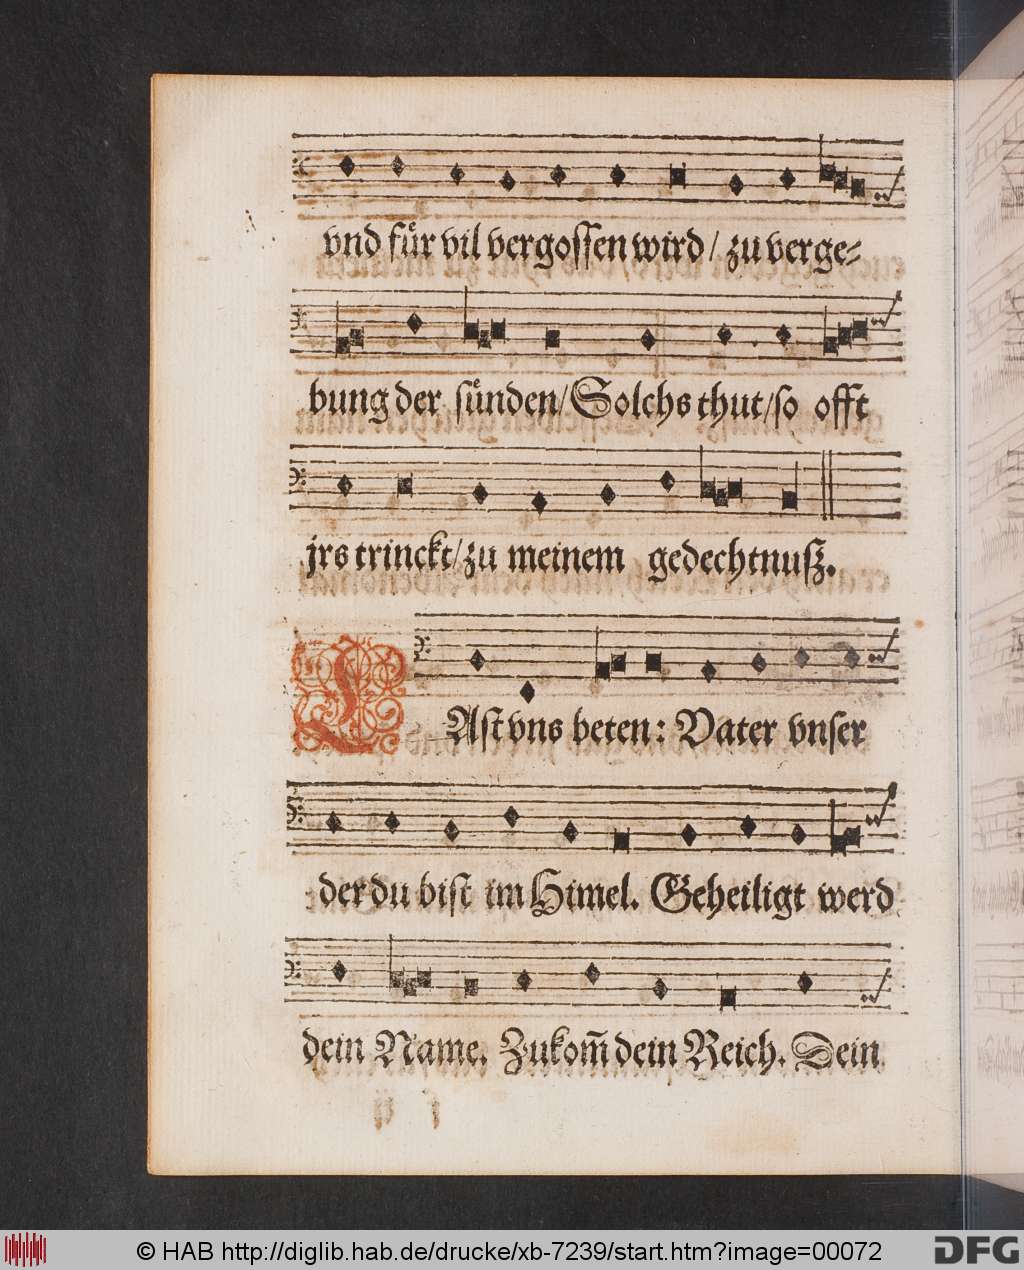 vnd für vil vergossen wird / zu verge⸗
bung der sünden/ Solchs thut/ so offt
jrs trinckt/ zu meinem gedechtnuß.
LAst vns beten: Vater vnser
der du bist im Himel. Geheiligt werd
dein Name. Zukom̃ dein Reich. Dein
© HAB http://diglib.hab.de/drucke/xb-7239/start.htm?image=00072
DFG